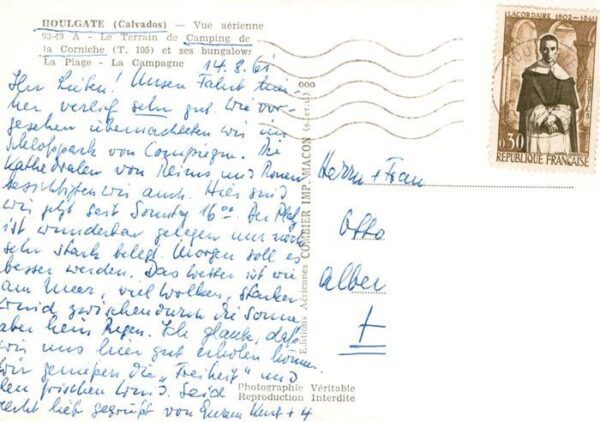 HOULGATE (Calvados) — Vue aérienne
93-49 A - Le Terrain de Camping de
la Corniche (T. 105) et ses bungalows
La Plage - La Campagne
14.8.61
Ihr Lieben! Unsere Fahrt hier-
her verlief sehr gut. Wie vor-
gesehen übernachteten wir im
Schloßpark von Compiègne. Die
Kathedralen von Reims und Rouen
besichtigten wir auch. Hier sind
wir jetzt seit Sonntag 16⁰⁰. Der Platz
ist wunderbar gelegen nur noch
sehr stark belegt. Morgen soll es
besser werden. Das Wetter ist wie
am Meer, viel Wolken, starker
Wind zwischendurch die Sonne
aber kein Regen. Ich glaube, daß
wir uns hier gut erholen können.
Wir genießen die „Freiheit" und
den frischen Wind. Seid
recht lieb gegrüßt von Eurem Kurt + 4
Editions Aériennes COMBIER IMP. MACON (S.-et-L.)
Photographie Véritable
Reproduction Interdite
LACORDAIRE 1802-1861
0,30
POSTES
REPUBLIQUE FRANÇAISE
Herrn + Frau
Otto
Alber